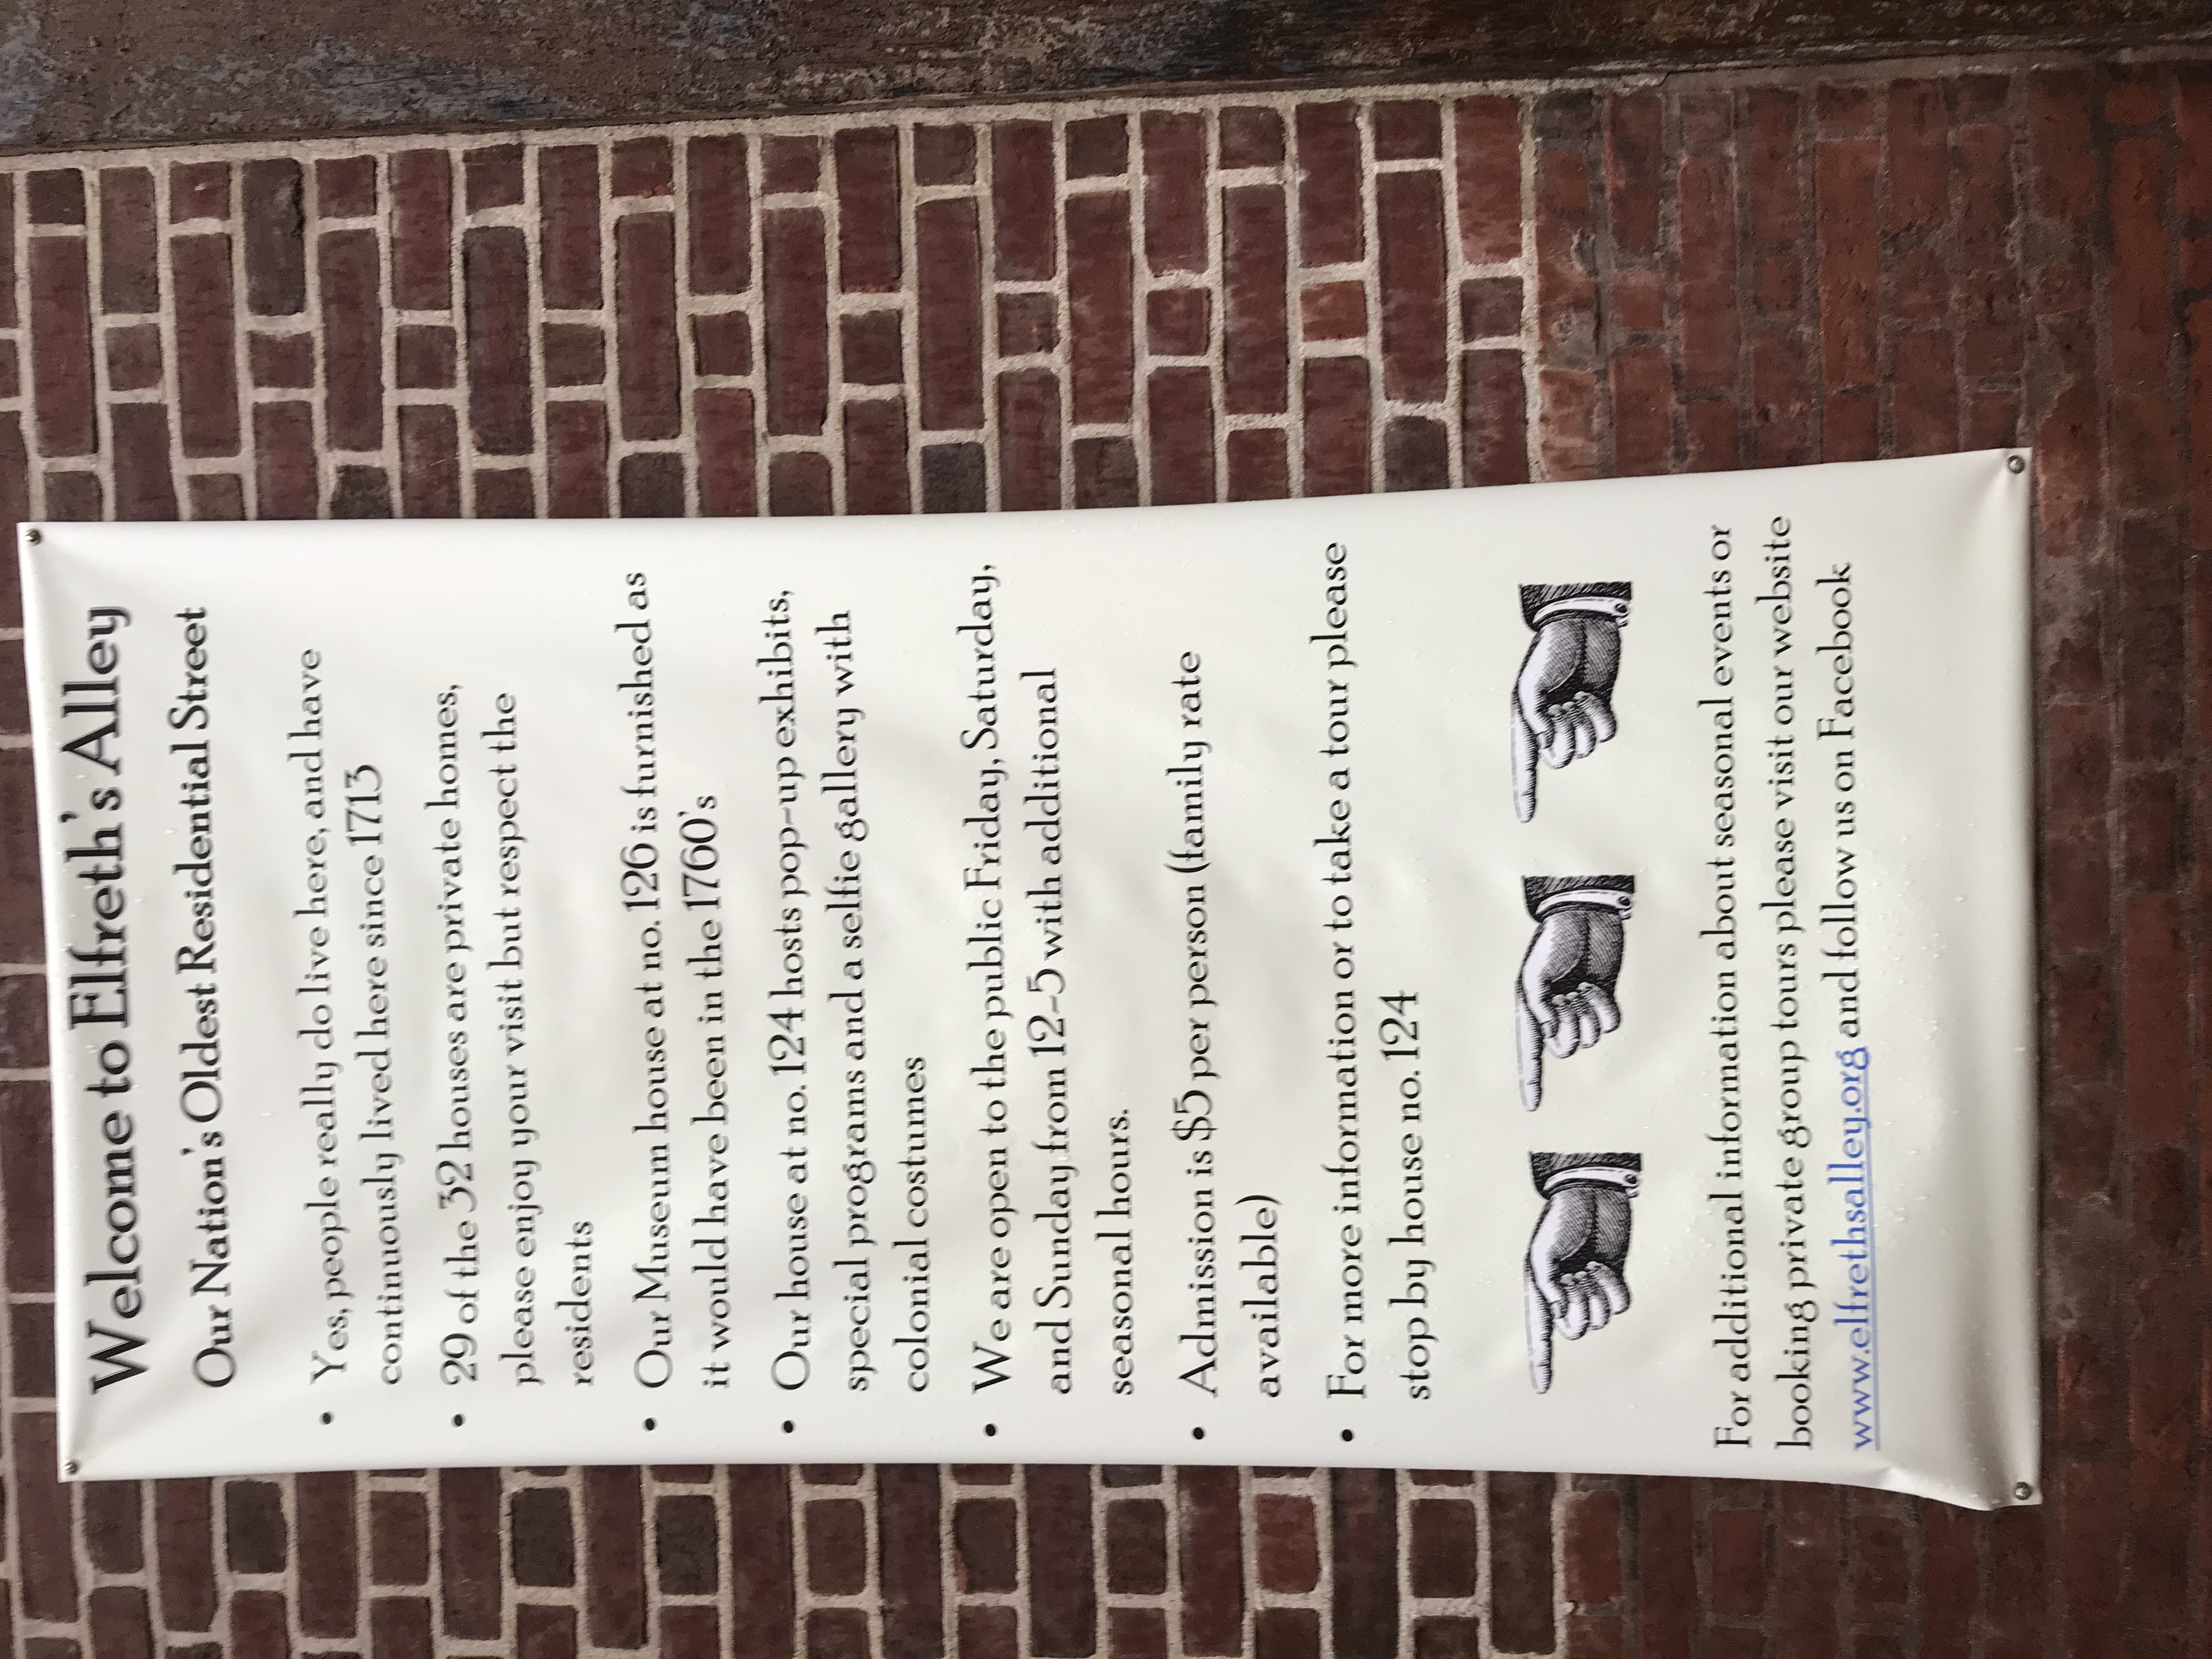 Welcome to Elfreth's Alley
Our Nation's Oldest Residential Street
• Yes, people really do live here, and have
continuously lived here since 1713
• 29 of the 32 houses are private homes,
please enjoy your visit but respect the
residents
• Our Museum house at no. 126 is furnished as
it would have been in the 1760's
• Our house at no. 124 hosts pop-up exhibits,
special programs and a selfie gallery with
colonial costumes
• We are open to the public Friday, Saturday,
and Sunday from 12-5 with additional
seasonal hours.
• Admission is $5 per person (family rate
available)
• For more information or to take a tour please
stop by house no. 124
For additional information about seasonal events or
booking private group tours please visit our website
www.elfrethsalley.org and follow us on Facebook